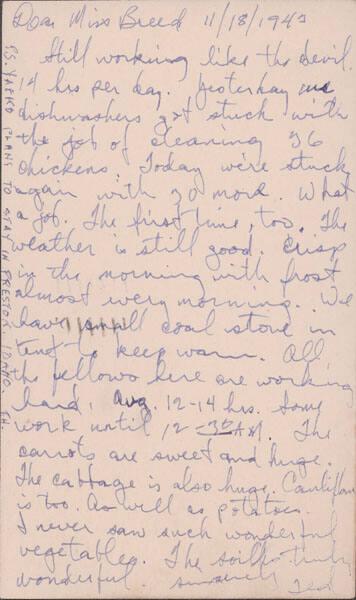 Dear Miss Breed 11/18/1942
Still working like the devil.
14 hrs per day. Yesterday we
dishwashers got stuck with
the job of cleaning 36
chickens. Today we're stuck
again with 30 more. What
a job. The first time, too. The
weather is still good. Crisp
in the morning with frost
almost every morning. We
have small coal stove in
tent to keep warm. All
the fellows here are working
hard. Avg. 12-14 hrs. Some
work until 12-30 AM. The
carrots are sweet and huge.
The cabbage is also huge. Cauliflower
is too. As well as potatoes.
I never saw such wonderful
vegetables. The soil's truly
wonderful. Sincerely Ted
P.S. YAEKO PLANS TO STAY IN PRESTON, IDAHO. TH.